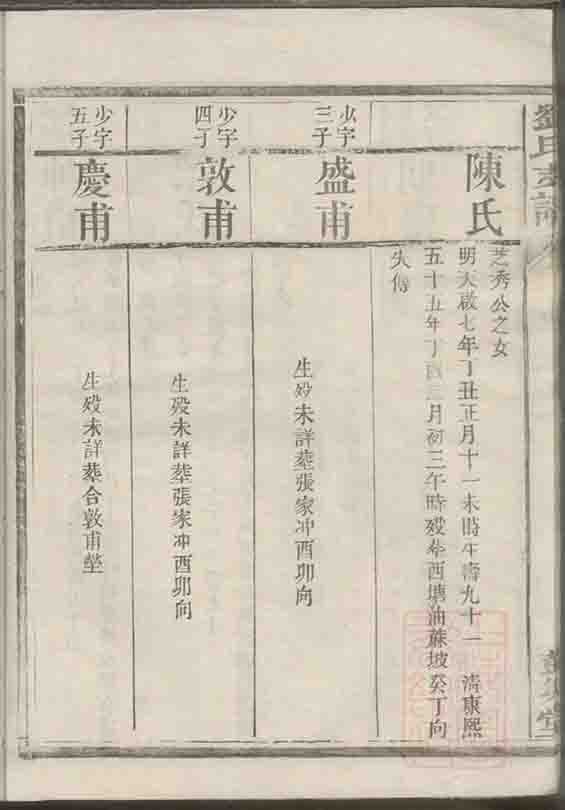 劉氏支譜
陳氏
芝秀公之女
明天啟七年丁丑正月十一未時生壽九十一 清康熙
五十五年丁酉三月初三午時歿葬西塘油蔴坡癸丁向
失傳
少字三子
盛甫
生歿未詳葬張家冲酉卯向
少字四子
敦甫
生歿未詳葬張家冲酉卯向
少字五子
慶甫
生歿未詳葬合敦甫塋